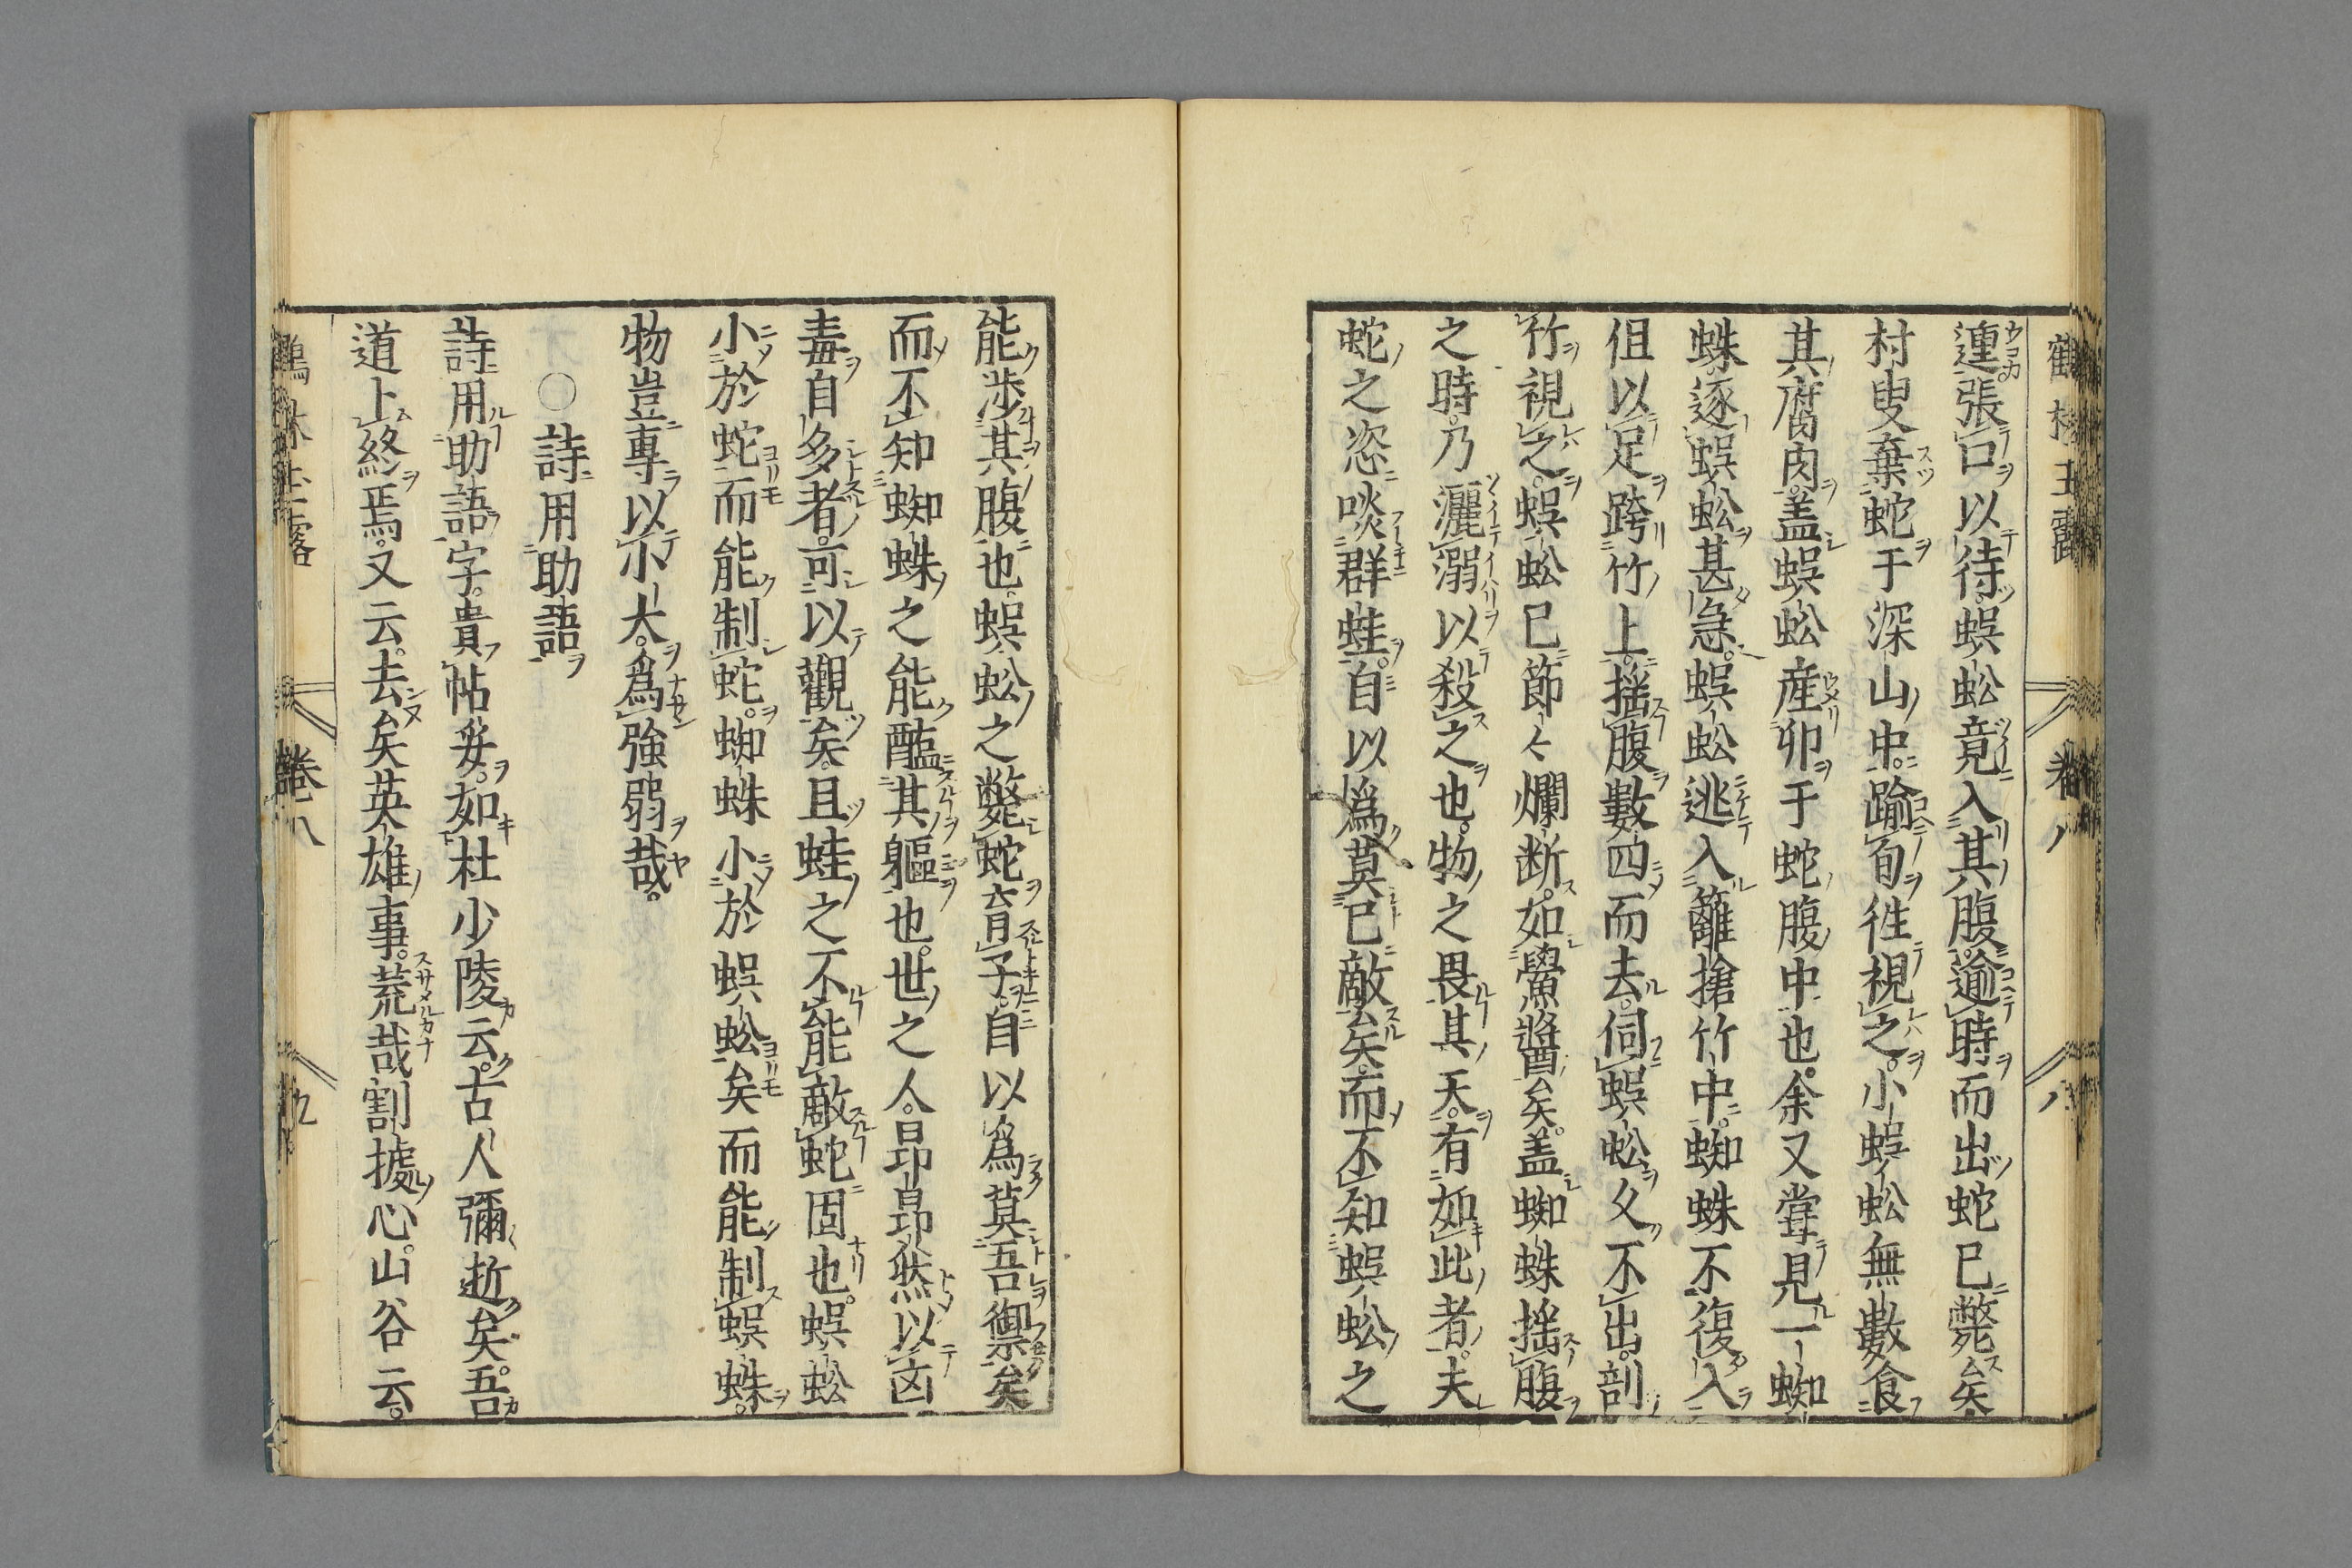 連張口以待蜈蚣竟入其腹。逾時而出蛇已斃矣
村叟棄蛇于深山中。踰旬徃視之。小蜈蚣無數食
其腐肉。盖蜈蚣産卵于蛇腹中也。余又甞見一蜘
蛛逐蜈蚣甚急。蜈蚣逃入籬搶竹中。蜘蛛不復入
但以足跨竹上。揺腹數四而去。伺蜈蚣久不出。剖
竹視之。蜈蚣已節々爛断。如鱟醬矣。盖蜘蛛揺腹
之時。乃灑溺以殺之也。物之畏其天。有如此者。夫
蛇之恣啖群蛙。自以爲莫已敵矣。而不知蜈蚣之
能渉其腹也。蜈蚣之斃蛇育子。自以爲莫吾禦矣
而不知蜘蛛之能醢其軀也。世之人。昂昂然以㐫
毒自多者。可以觀矣。且蛙之不能敵蛇固也。蜈蚣
小於蛇而能制蛇。蜘蛛小於蜈蚣矣而能制蜈蛛。
物豈專以小大。爲強弱哉。
○詩用助語
詩用助語字。貴帖妥。如杜少陵云。古人彌逝矣。吾
道卜終焉。又云。去矣英雄事。荒哉割據心。山谷云。
卷八
九